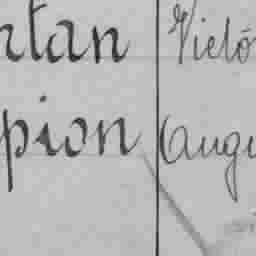 ntan Vieló
pion Augu